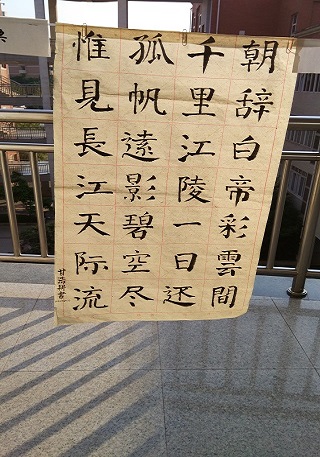 朝辞白帝彩雲間
千里江陵一日还
孤帆遠影碧空尽
惟見長江天际流